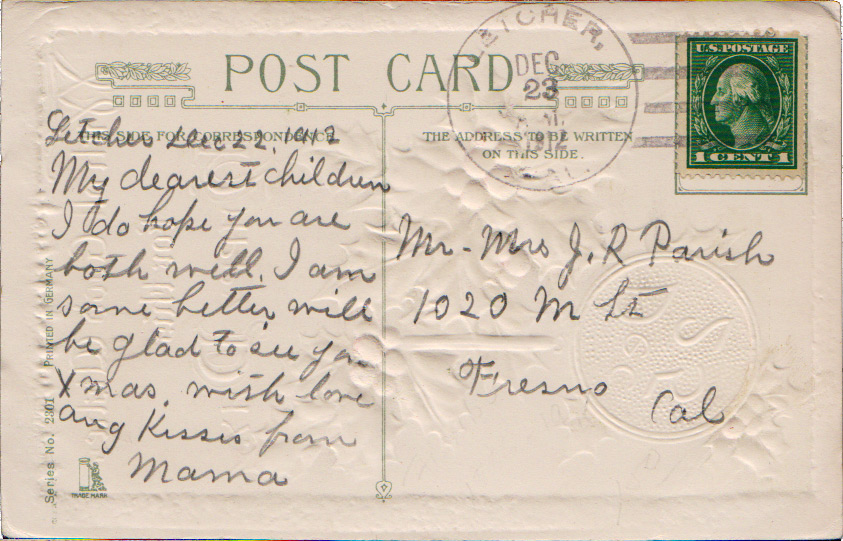 ETCHER,
DEC
23
1912
CAL.
U.S. POSTAGE
1 CENT 1
POST CARD
THIS SIDE FOR CORRESPONDENCE
THE ADDRESS TO BE WRITTEN
ON THIS SIDE.
Letcher Dec 22, 1912
My dearest children
I do hope you are
both well. I am
some better will
be glad to see you
Xmas. with love
and Kisses from
Mama
Mr - Mrs J. R Parish
1020 M St
Fresno
Cal
Series No. 2301 PRINTED IN GERMANY
TRADE MARK